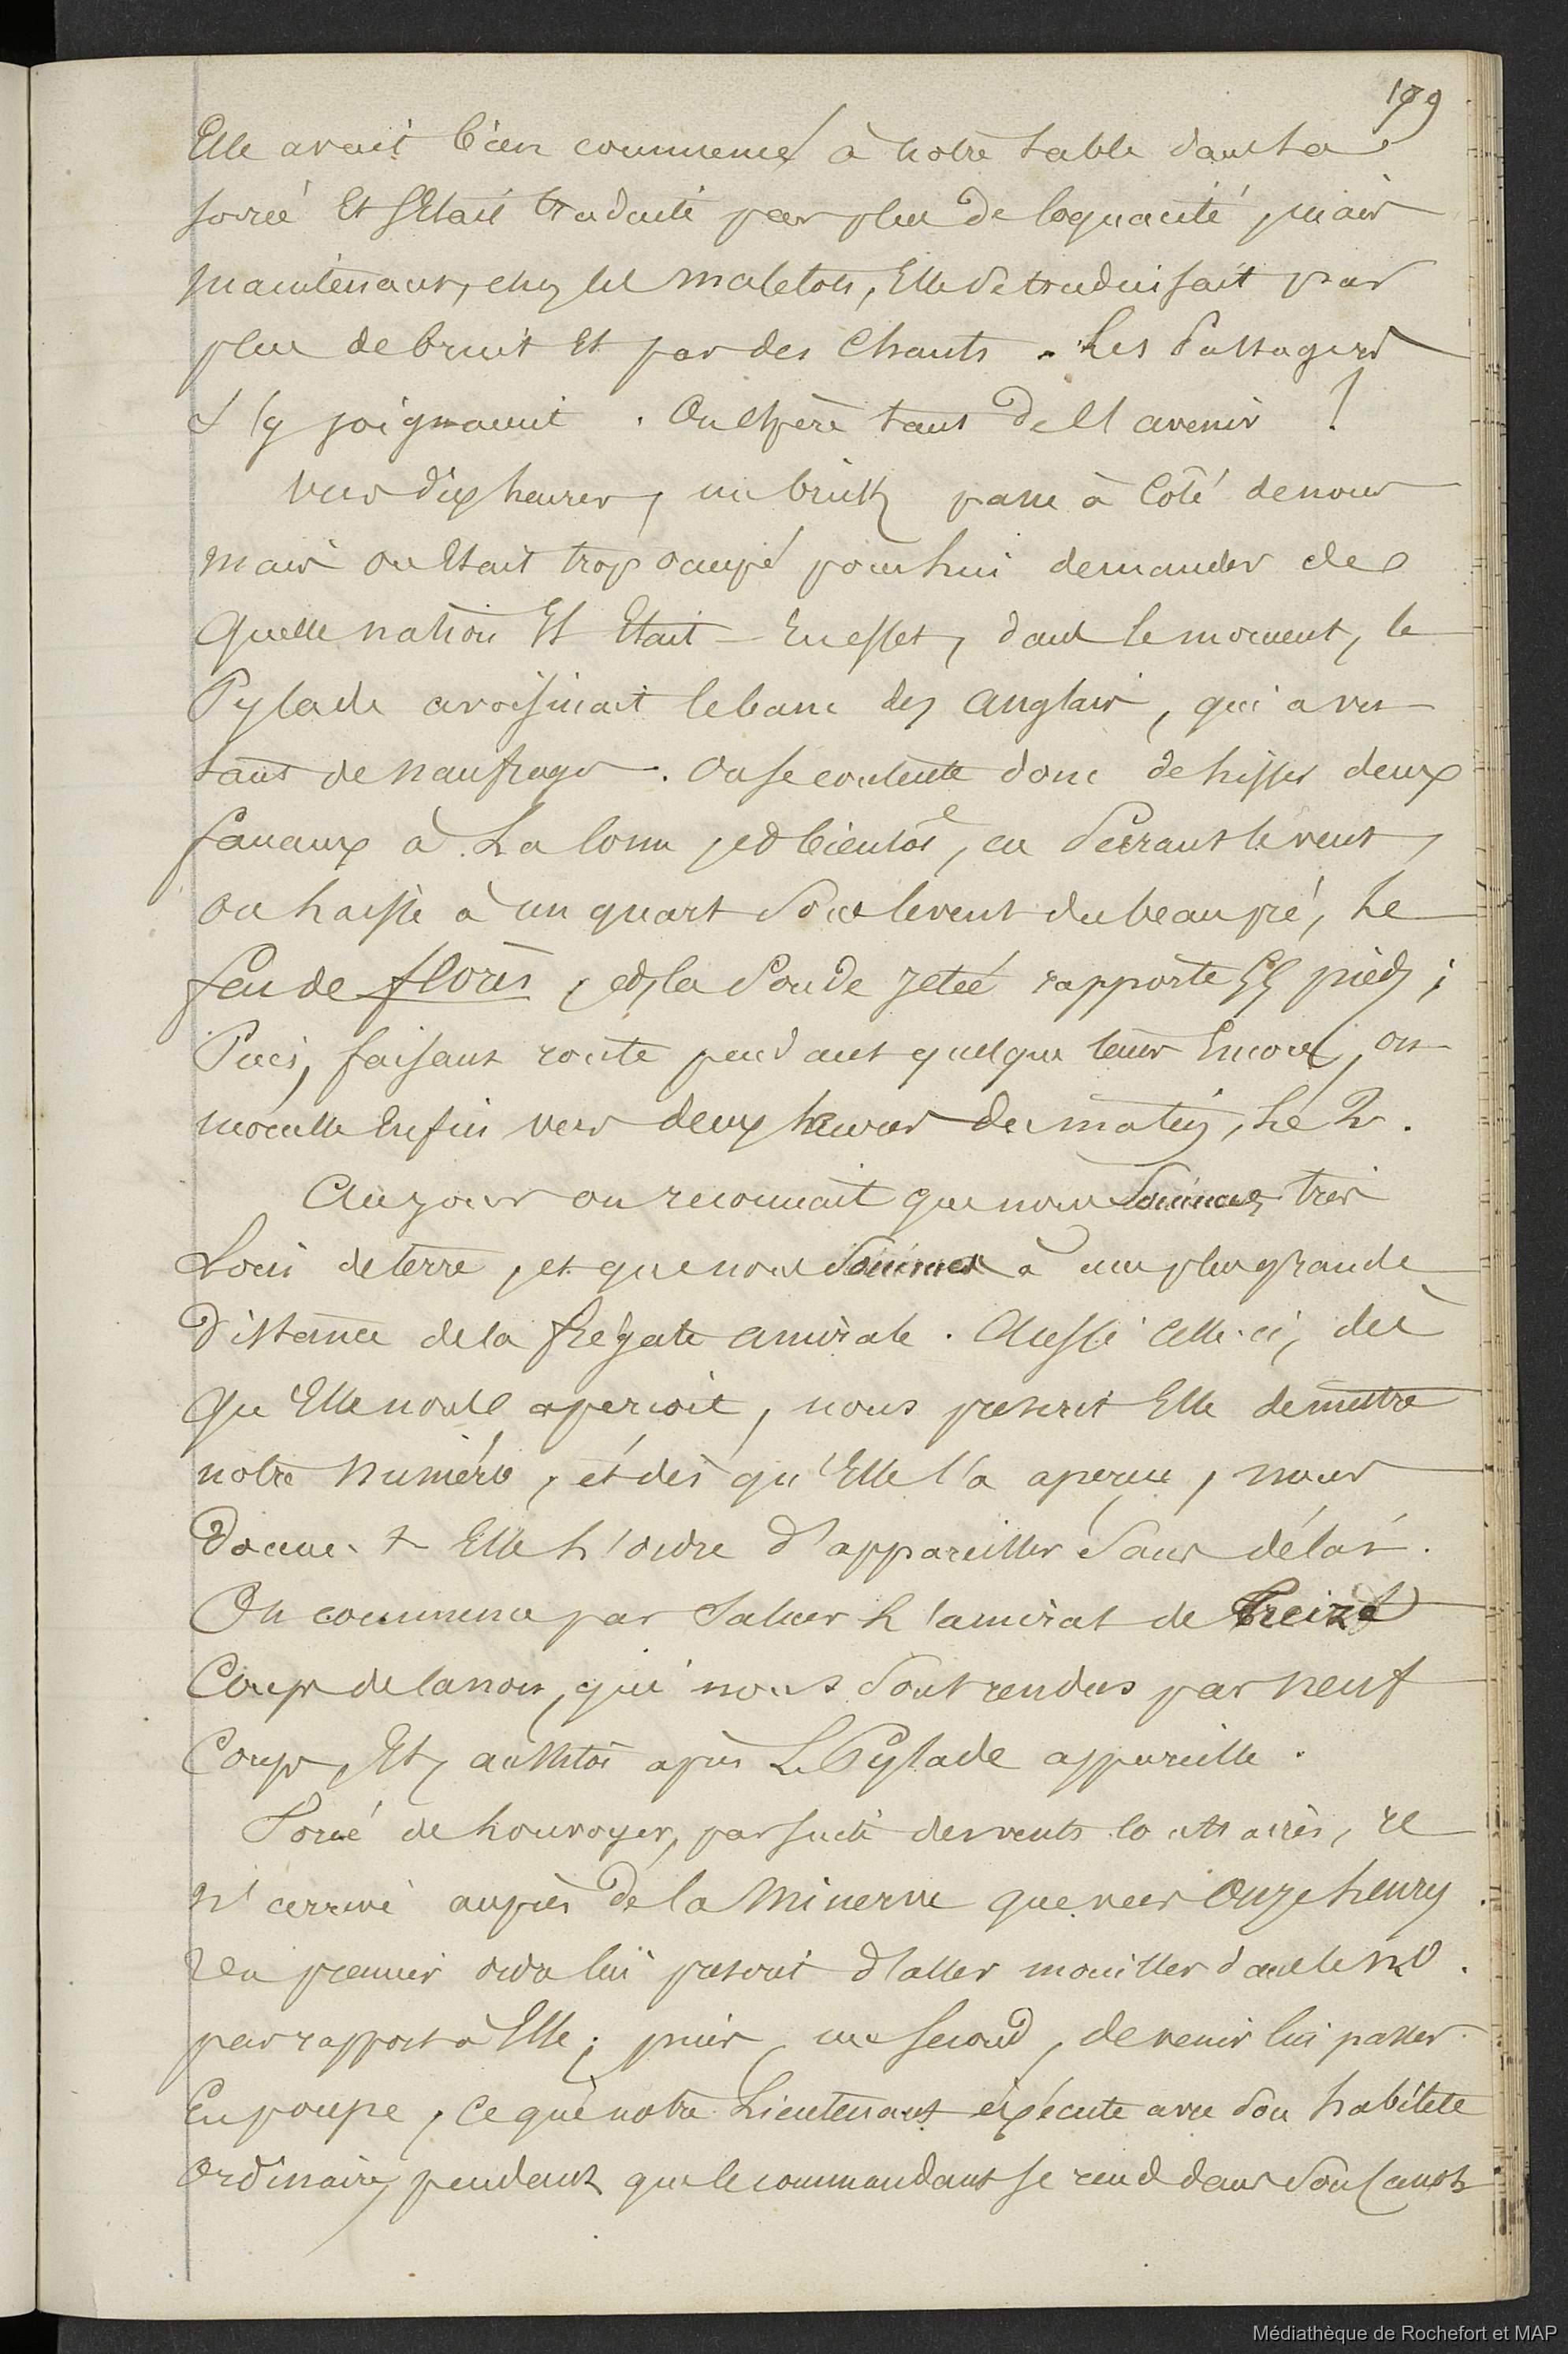 179
Elle avait bien commencé à notre table dans la
soirée et s'était traduite par plus de loquacité, mais
maintenant, chez les matelots, Elle se traduisait par
plus de bruit et par des chants. Les Passagers
s'y joignaient. On espère tant de l'avenir !
Vers dix heures, un brick passe à côté de nous
mais on était trop occupé pour lui demander de
quelle nation Il Etait – En effet, dans le moment, le
Pylade avoisinait le banc des anglais, qui a vu
tant de naufrages. On se contente donc de hisser deux
fanaux à La corne, et bientôt, en serrant le vent,
on laisse à un quart sous le vent du beaupré, Le
feu de flores, et la sonde jetée rapporte 55 pieds ;
Puis, faisant route pendant quelque tems Encore, on
mouille Enfin vers deux heures du matin, Le 2.
Au jour on reconnait que nous sommes très
Loin de terre, et que nous sommes à une plus grande
Distance de la frégate amirale. Aussi celle-ci, dès
qu'Elle nous aperçoit, nous prescrit Elle de mettre
notre Numéro, et dès qu'Elle l'a aperçu, nous
Donne-t-Elle L'ordre d'appareiller Sans délai.
On commence par saluer L'amiral de treize
Coups de canon, qui nous sont rendus par neuf
Coups, Et, aussitôt après Le Pylade appareille.
Forcé de Louvoyer, par suite des vents contraires, il
n'arrive auprès de la Minerve que vers Onze heures.
Un premier ordre lui prescrit d'aller mouiller dans le NO.
par rapport à Elle ; puis, un second, de venir lui passer
En poupe, ce que notre Lieutenant exécute avec son habileté
Ordinaire, pendant que le commandant se rend dans son canot
Médiathèque de Rochefort et MAP